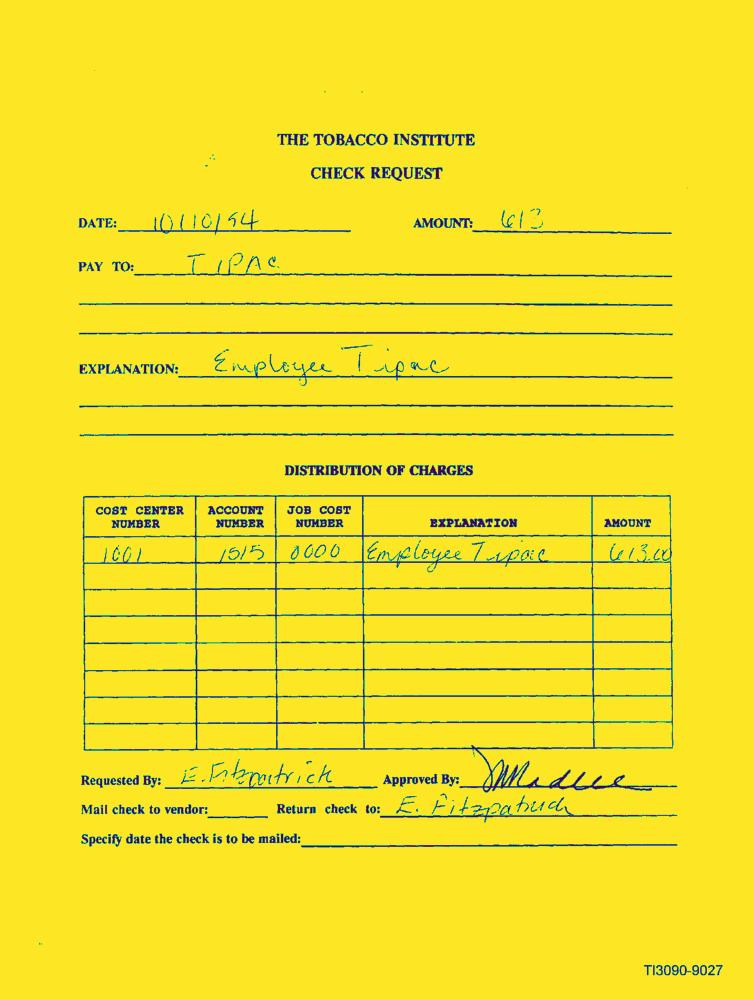 THE TOBACCO INSTITUTE
CHECK REQUEST
DATE: 10/10/94 AMOUNT: 613
PAY TO: TIPAC
EXPLANATION: Employee Tipac
DISTRIBUTION OF CHARGES
COST CENTER NUMBER ACCOUNT NUMBER JOB COST NUMBER EXPLANATION AMOUNT
1001 1515 0000 Employee Tipac 613.00
Requested By: E. Fitzpatrick Approved By:
Mail check to vendor: Return check to: E. Fitzpatrick
Specify date the check is to be mailed:
TI3090-9027